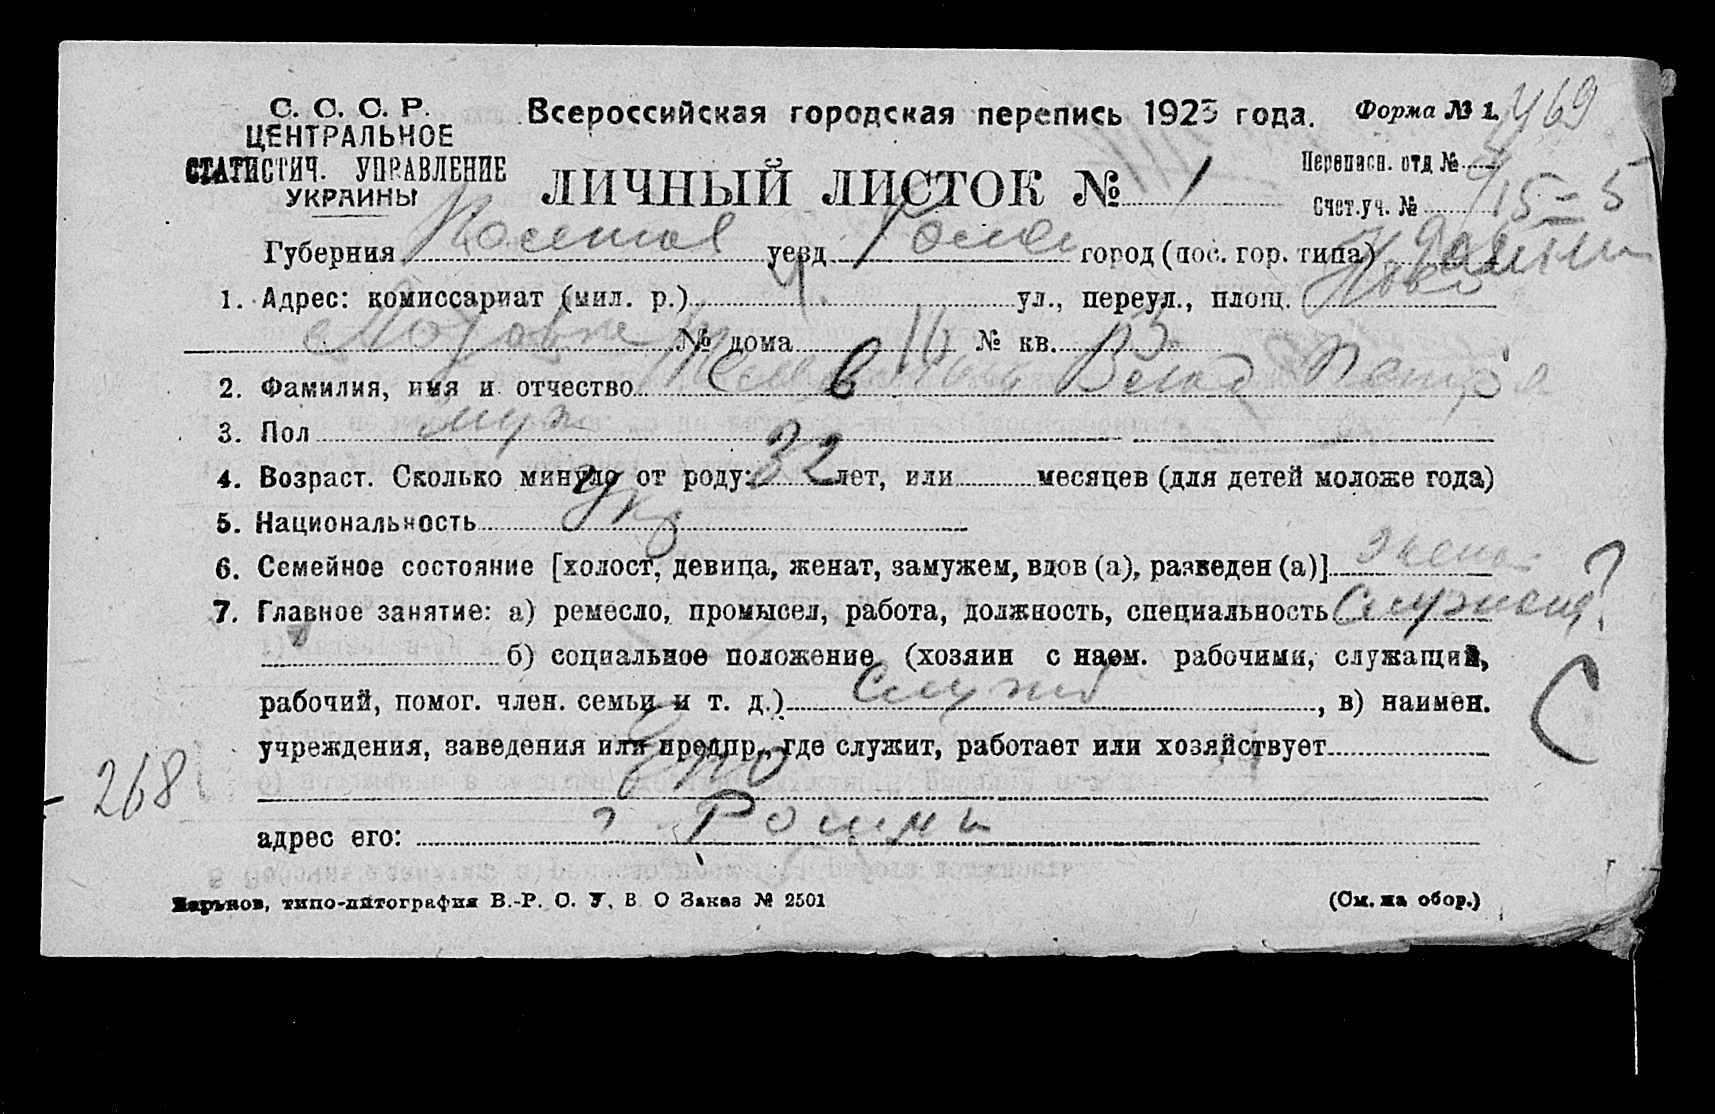 С. С. С. Р.
ЦЕНТРАЛЬНОЕ
СТАТИСТИЧ. УПРАВЛЕНИЕ
УКРАИНЫ
Всероссийская городская перепись 1923 года.
Форма № 1.
469
ЛИЧНЫЙ ЛИСТОК № 1
Переписн. отд №
Счет.уч. № 15=5
Губерния Полтав уезд Ромен город (пос. гор. типа) Ромны
1. Адрес: комиссариат (мил. р.) ул., переул., площ. Ново
№ дома № кв.
2. Фамилия, имя и отчество
3. Пол муж
4. Возраст. Сколько минуло от роду: 32 лет, или месяцев (для детей моложе года)
5. Национальность Укр
6. Семейное состояние [холост, девица, женат, замужем, вдов (а), разведен (а)] женат
7. Главное занятие: а) ремесло, промысел, работа, должность, специальность Служащ ?
б) социальное положение (хозяин с наем. рабочими, служащий,
рабочий, помог. член. семьи и т. д.) Служ , в) наимен.
С
учреждения, заведения или предпр., где служит, работает или хозяйствует
268
адрес его: г Ромны
Харьков, типо-литография В.-Р. С. У. В. О Заказ № 2501
(См. на обор.)